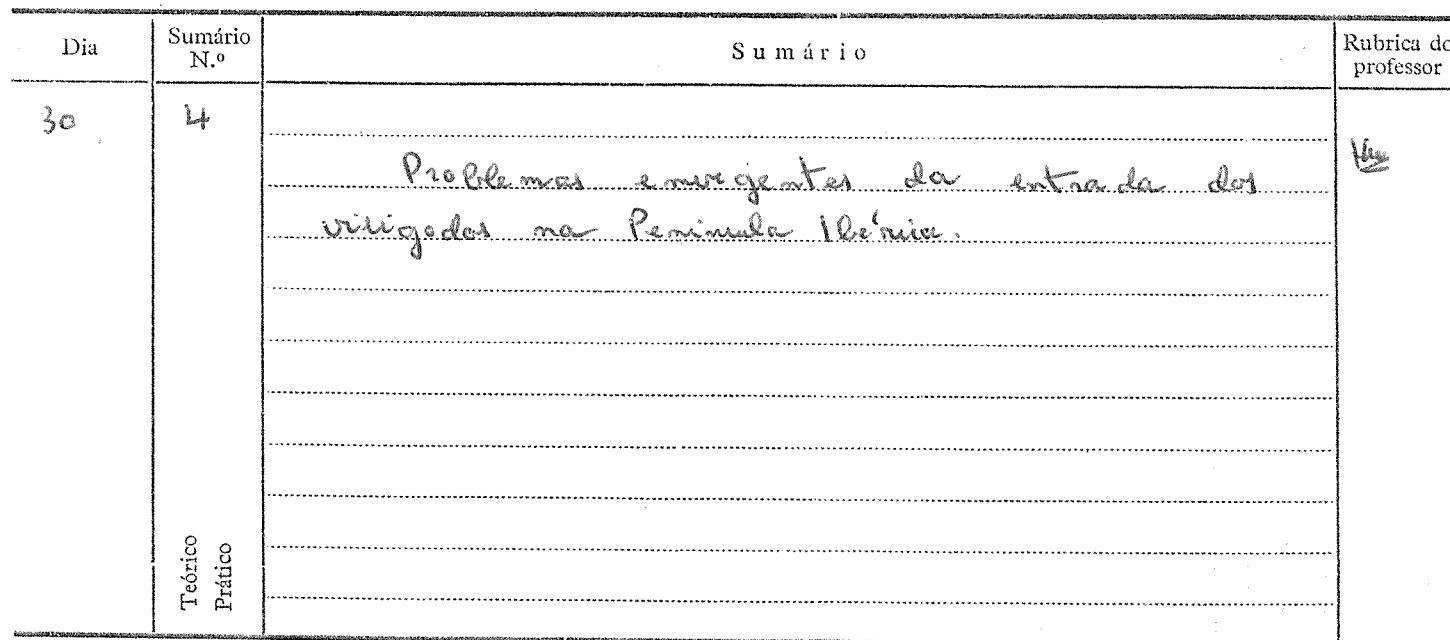 Dia
Sumário
N.º
Sumário
Rubrica do
professor
30
4
Problemas emergentes da entrada dos
visigodos na Península Ibérica.
Teórico
Prático